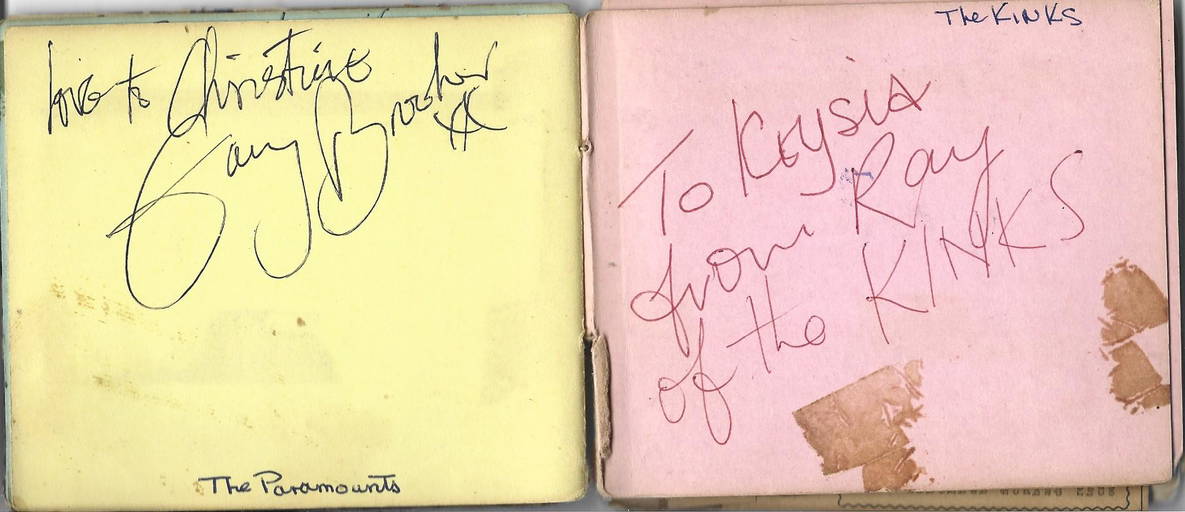 love to Christine
Gary Brooker
xx
The Paramounts
The KINKS
To Krysia
from Ray
of the KINKS